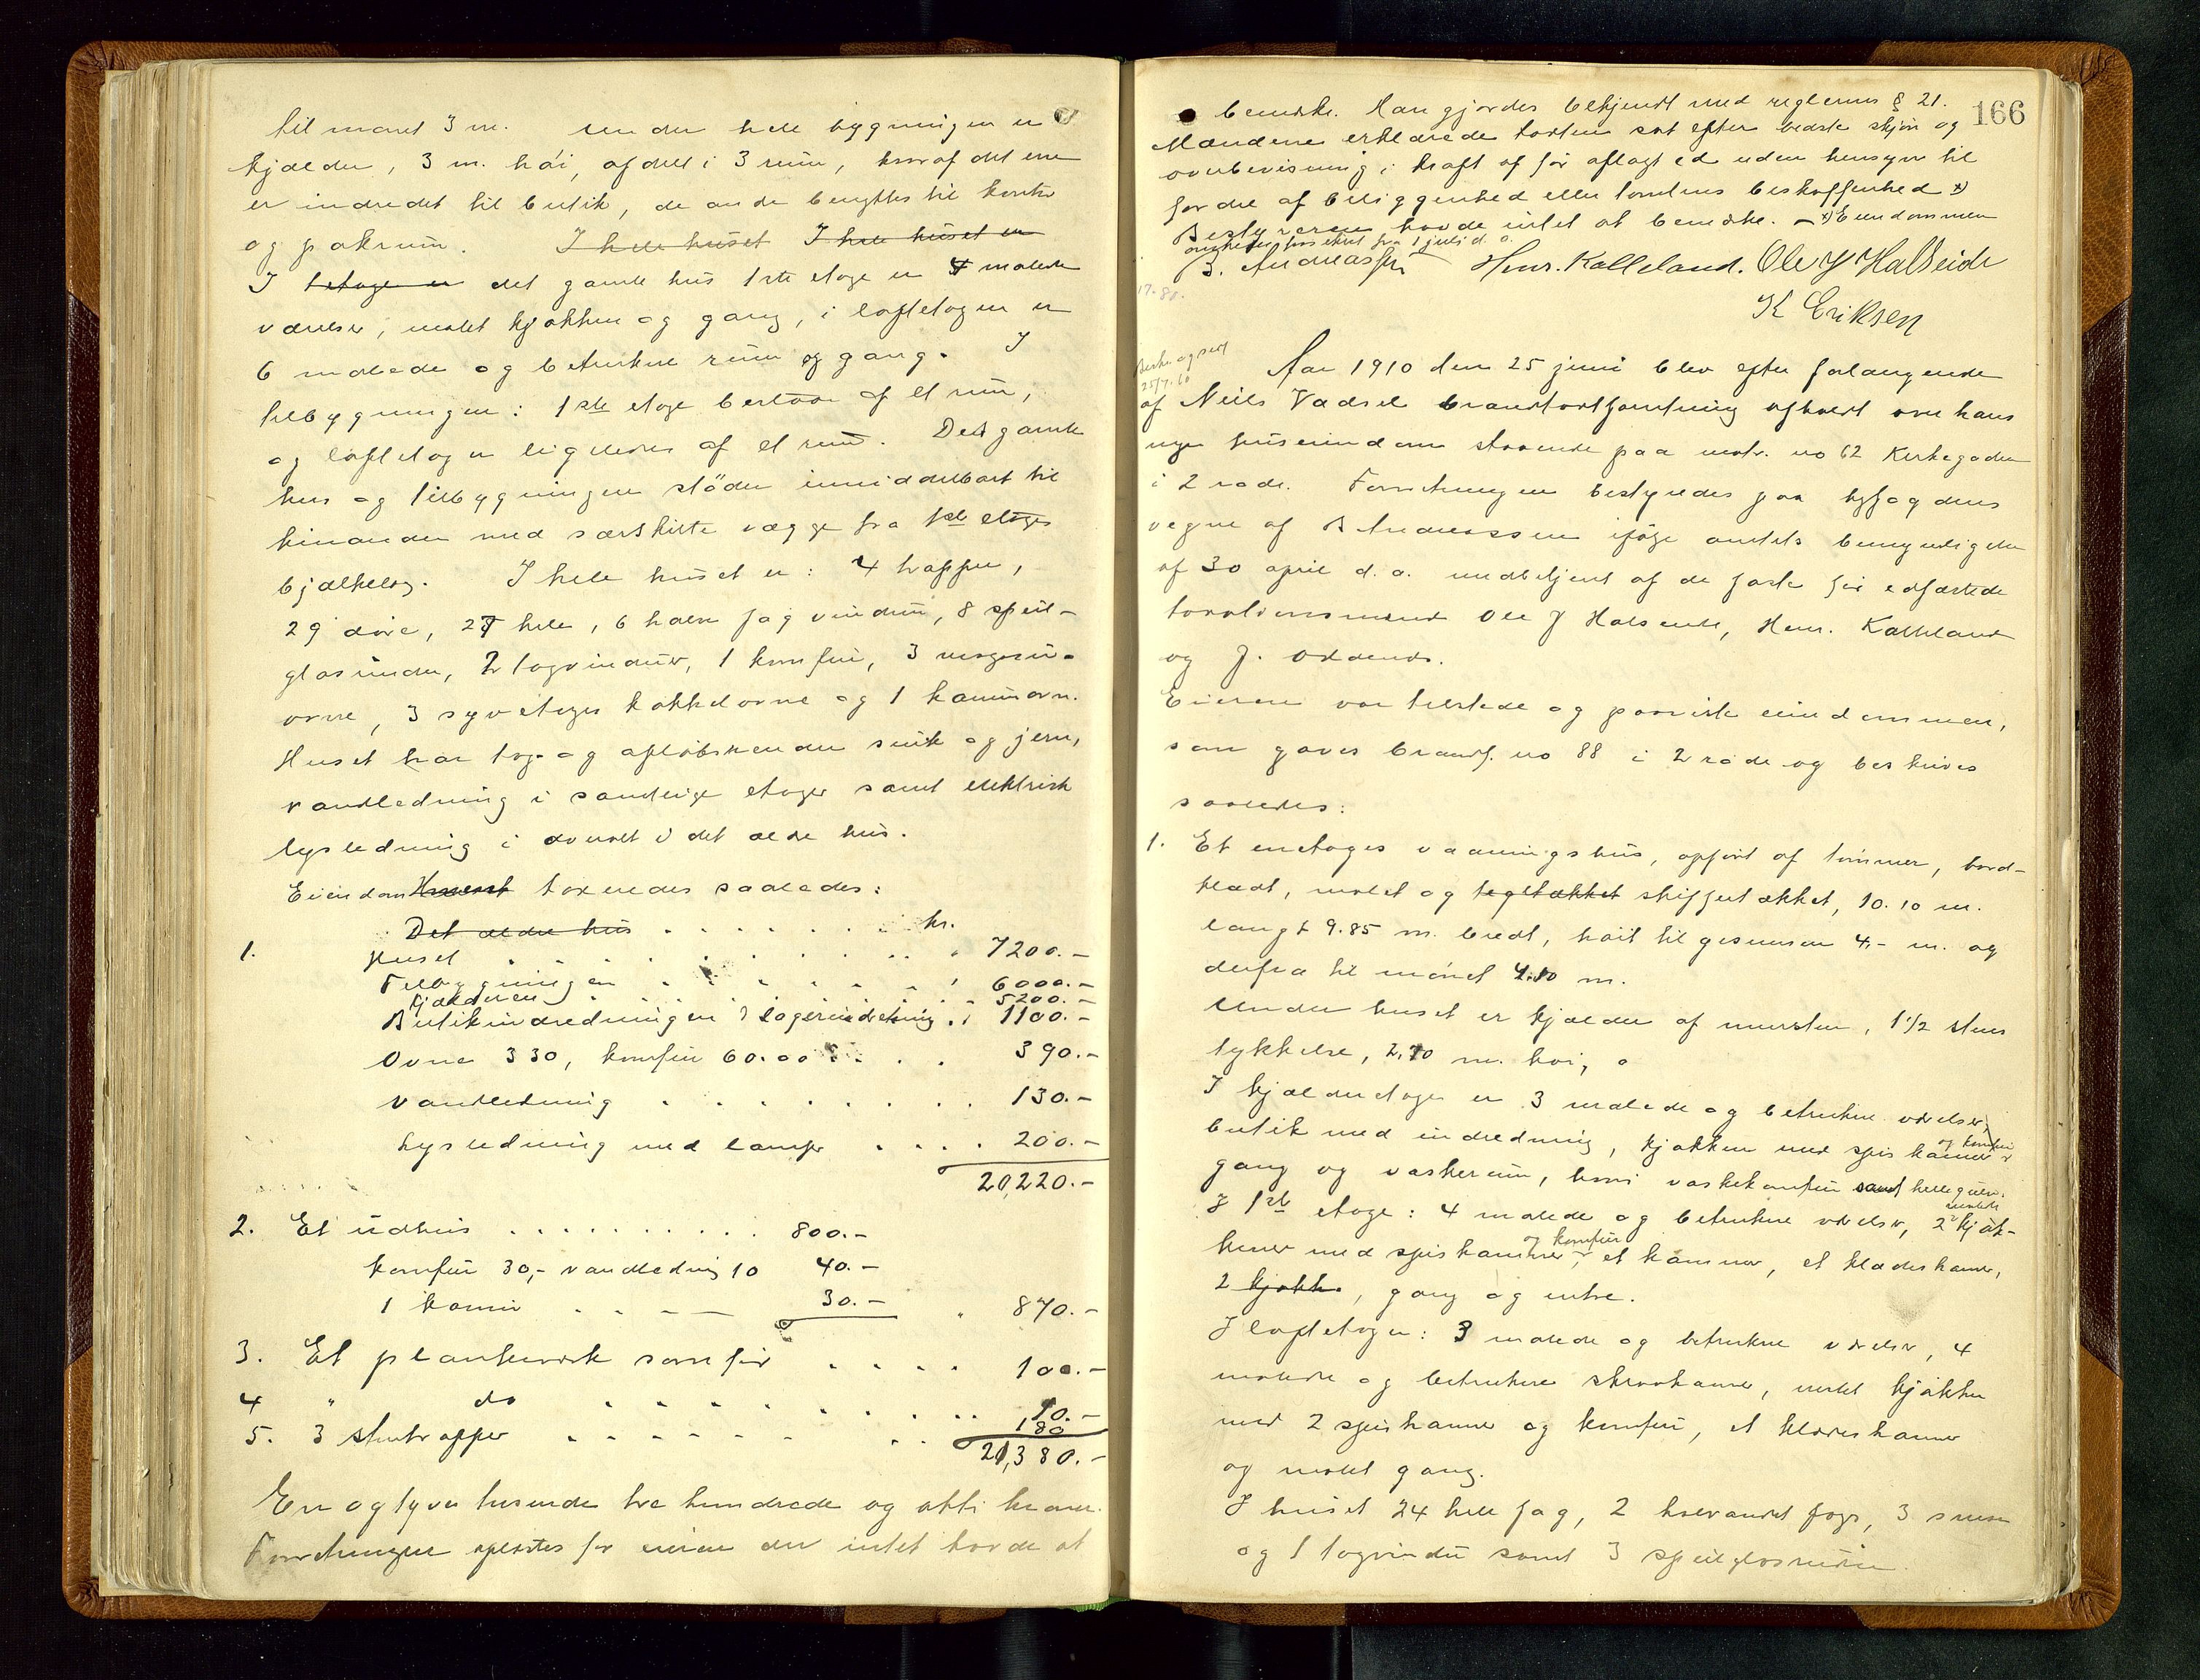 til mønet 3 m. Under hele bygningen er
kjælder, 3 m. høi, afdelt i 3 rum, hvoraf det ene
er indredet til butik, de andre benyttes til kontor
og pakrum. I hele huset I hele huset er
I 1 etage er det gamle hus 1ste etage er 4 malede
værelser, malet kjøkken og gang, i loftetagen er
6 malede og betrukne rum og gang. I
tilbygningen: 1ste etage bestaar af et rum,
og loftetagen ligeledes af et rum. Det gamle
hus og tilbygningen støder umiddelbart til
hinanden med særskilte vægge fra 1ste etages
bjælkelag. I hele huset er: 4 trapper,
29 døre, 27 hele, 6 halve fag vinduer, 8 speil-
glasruder, 2 tagvinduer, 1 komfur, 3 magasin-
ovne, 3 syvetages kakkelovne og 1 kaminovn.
Huset har tag- og afløbsrender sink og jern,
vandledning i samtlige etager samt elektrisk
lysledning i overalt i det ældre hus.
Eiendom Huset taxeredes saaledes:
Det ældre hus . . . . . . kr.
1. Huset . . . . . . 7200.-
Tilbygningen . . . . . . 6000.-
Kjælderen . . . . . . 5200.-
Butikindredningen & lagerindretning . . 1100.-
Ovne 330, komfur 60.00 . . . 390.-
Vandledning . . . . . . 130.-
Lysledning med lamper . . . . 200.-
20,220.-
2. Et udhus . . . . . . 800.-
komfur 30,- vandledning 10 40.-
1 kamin . . . 30.- " 870.-
3. Et plankeværk som før . . . . 100.-
4 " do . . . . . . 10.-
5. 3 stentrapper . . . . . . 180
21,380.-
En og tyve tusende tre hundrede og otti kroner.
Forretningen oplæstes for eieren der intet havde at
166
bemærke. Han gjordes bekjendt med reglerne § 21.
Mændene erklærede taxten sat efter bedste skjøn og
overbevisning i kraft af før aflagt ed uden hensyn til
fordel af beliggenhed eller tomtens beskaffenhed x)
Bestyreren havde intet at bemærke. - x) Eiendommen
forsikret fra 1 juli d. a.
B. Andreassen Henr. Kalleland. Ole J Halseide
K Eriksen
Aar 1910 den 25 juni blev efter forlangende
af Neils Vadsel brandtaxtforretning afholdt over hans
nye huseiendom staaende paa matr. no 62 Kirkegaden
i 2 rode. Forretningen bestyredes paa byfogdens
vegne af B Andreassen ifølge amtets bemyndigelse
af 30 april d. a. medbetjent af de faste før edfæstede
taxationsmænd Ole J Halseide, Henr. Kalleland
og J.
Eieren var tilstede og paaviste eiendommen,
som gaves brandf. no 88 i 2 rode og beskrives
saaledes:
1. Et enetages vaaningshus, opført af tømmer, bord-
klædt, malet og tegltækket skiffertækket, 10.10 m.
langt 9.85 m. bredt, høit til gesimsen 4,- m. og
derfra til mønet 4.10 m.
Under huset er kjælder af mursten, 1 1/2 stens
tykkelse, 2,70 m. høi,
I kjælderetagen er 3 malede og betrukne værelser,
butik med indredning, kjøkken med spiskammer og komfur
gang og vaskerum, hvori vaskekomfur samt hellegulv.
I 1ste etage: 4 malede og betrukne værelser, 2 malede kjøk-
kener med spiskammer og komfur, et kammer, et klædeskammer,
2 kjøkk. , gang og entre.
I loftetagen: 3 malede og betrukne værelser, 4
malede og betrukne skraakamre, malet kjøkken
med 2 spiskamre og komfur, et klædeskammer
og malet gang.
I huset 24 hele fag, 2 fags, 3 smaa
og 1 tagvindu samt 3 speilglasruder.